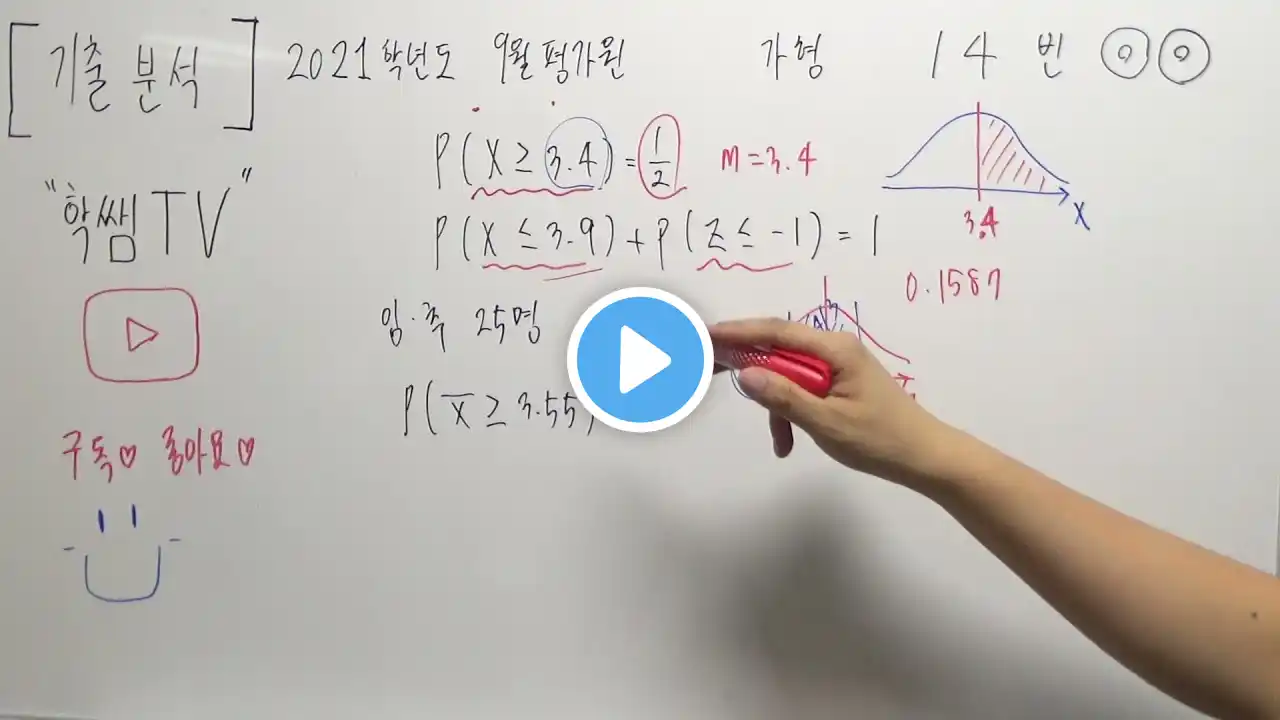 [기출 분석] 2021학년도 9월 평가원 가형 14번
P(X ≥ 3.4) = 1/2 m = 3.4
"학쌤TV"
P(X ≤ 3.9) + P(Z ≤ -1) = 1
3.4 X
0.1587
임·추 25명
P(X̄ ≥ 3.55)
구독♡ 좋아요♡